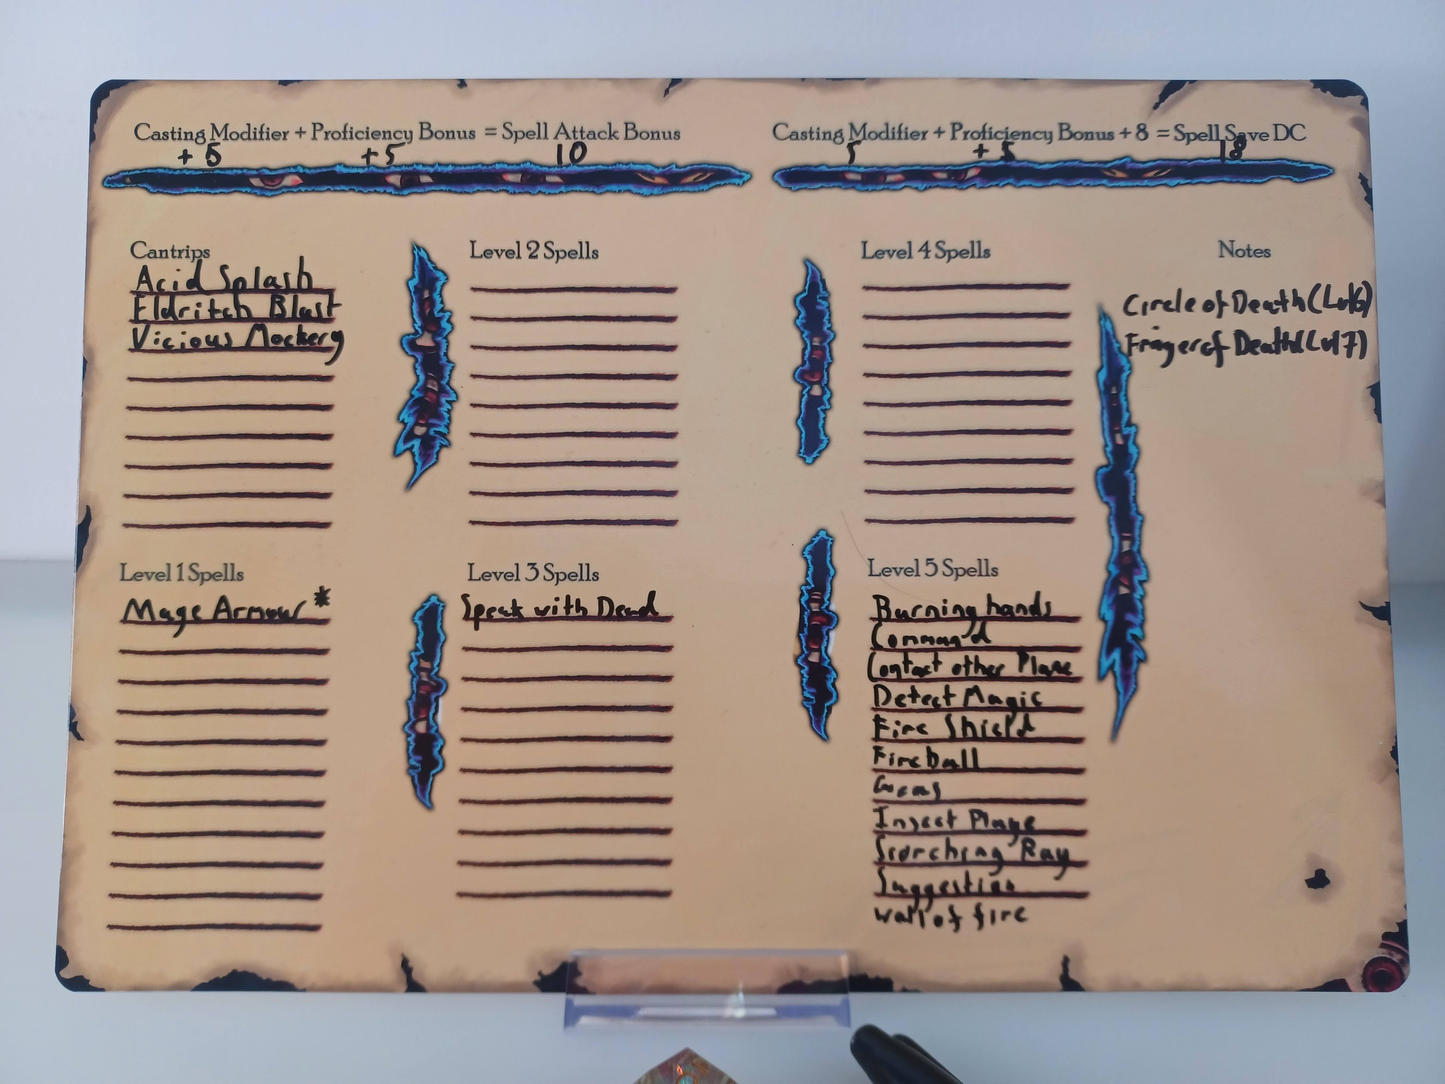 Casting Modifier + Proficiency Bonus = Spell Attack Bonus
+ 5 +5 10
Casting Modifier + Proficiency Bonus + 8 = Spell Save DC
5 + 5 18
Cantrips
Acid Splash
Eldritch Blast
Vicious Mockery
Level 1 Spells
Mage Armour *
Level 2 Spells
Level 3 Spells
Speak with Dead
Level 4 Spells
Level 5 Spells
Burning hands
Command
Contact other Plane
Detect Magic
Fire Shield
Fireball
Geas
Insect Plauge
Scorching Ray
Suggestion
wall of fire
Notes
Circle of Death (Lvl6)
Finger of Death (Lvl7)